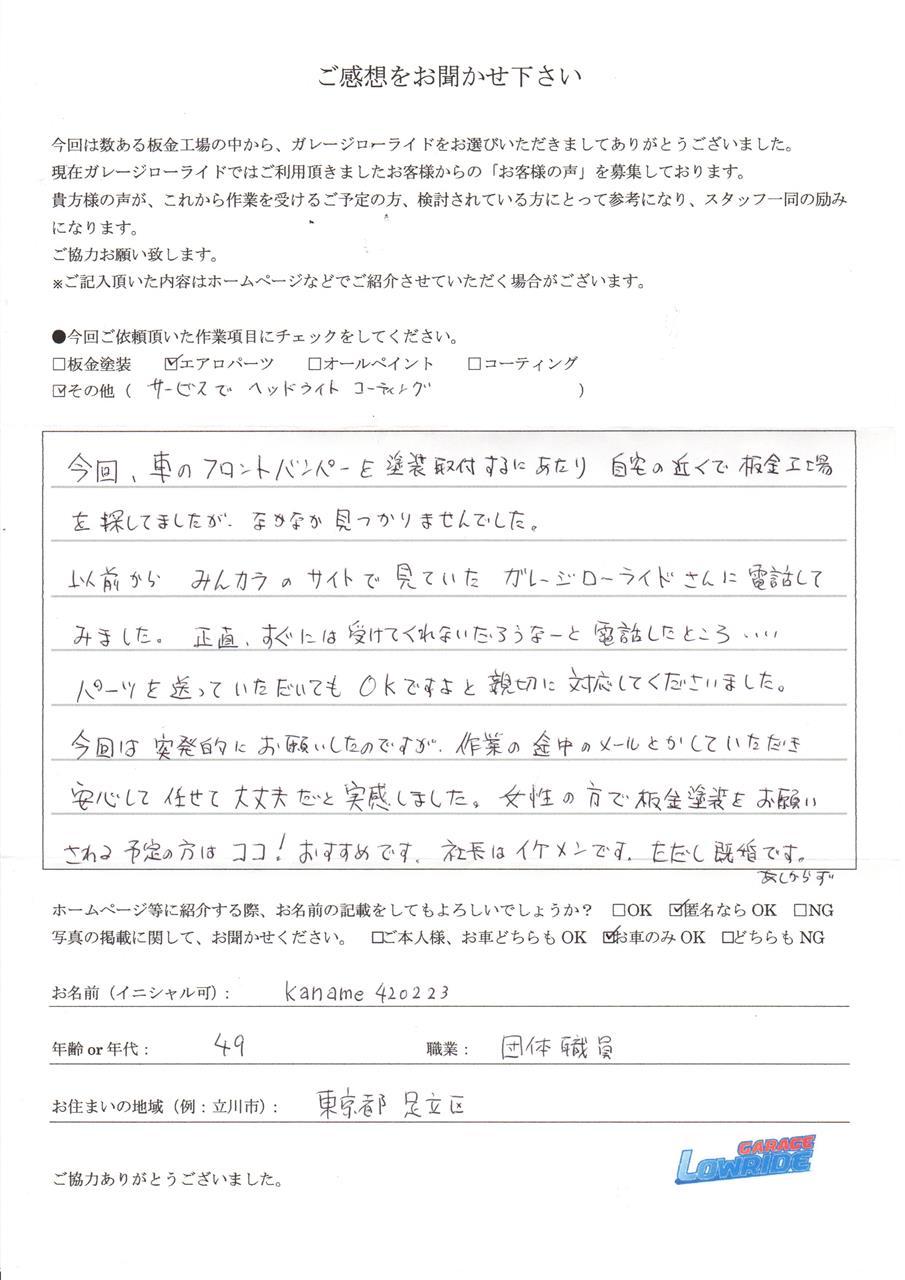 ご感想をお聞かせ下さい
今回は数ある板金工場の中から、ガレージローライドをお選びいただきましてありがとうございました。
現在ガレージローライドではご利用頂きましたお客様からの「お客様の声」を募集しております。
貴方様の声が、これから作業を受けるご予定の方、検討されている方にとって参考になり、スタッフ一同の励み
になります。
ご協力お願い致します。
※ご記入頂いた内容はホームページなどでご紹介させていただく場合がございます。
●今回ご依頼頂いた作業項目にチェックをしてください。
□板金塗装 ☑エアロパーツ □オールペイント □コーティング
☑その他（ サービスで ヘッドライト コーティング ）
今回、車のフロントバンパーを塗装取付するにあたり 自宅の近くで板金工場
を探してましたが、なかなか見つかりませんでした。
以前から みんカラのサイトで見ていた ガレージローライドさんに電話して
みました。 正直、すぐには受けてくれないだろうなーと電話したところ‥‥
パーツを送っていただいてもOKですよと親切に対応してくださいました。
今回は突発的にお願いしたのですが、作業の途中のメールとかしていただき
安心して任せて大丈夫だと実感しました。女性の方で板金塗装をお願い
される予定の方はココ！おすすめです。社長はイケメンです。ただし既婚です。
あしからず
ホームページ等に紹介する際、お名前の記載をしてもよろしいでしょうか？ □OK ☑匿名ならOK □NG
写真の掲載に関して、お聞かせください。 □ご本人様、お車どちらもOK ☑お車のみOK □どちらもNG
お名前（イニシャル可）： kaname 420223
年齢or年代： 49 職業： 団体職員
お住まいの地域（例：立川市）： 東京都 足立区
GARAGE
LOWRIDE
ご協力ありがとうございました。